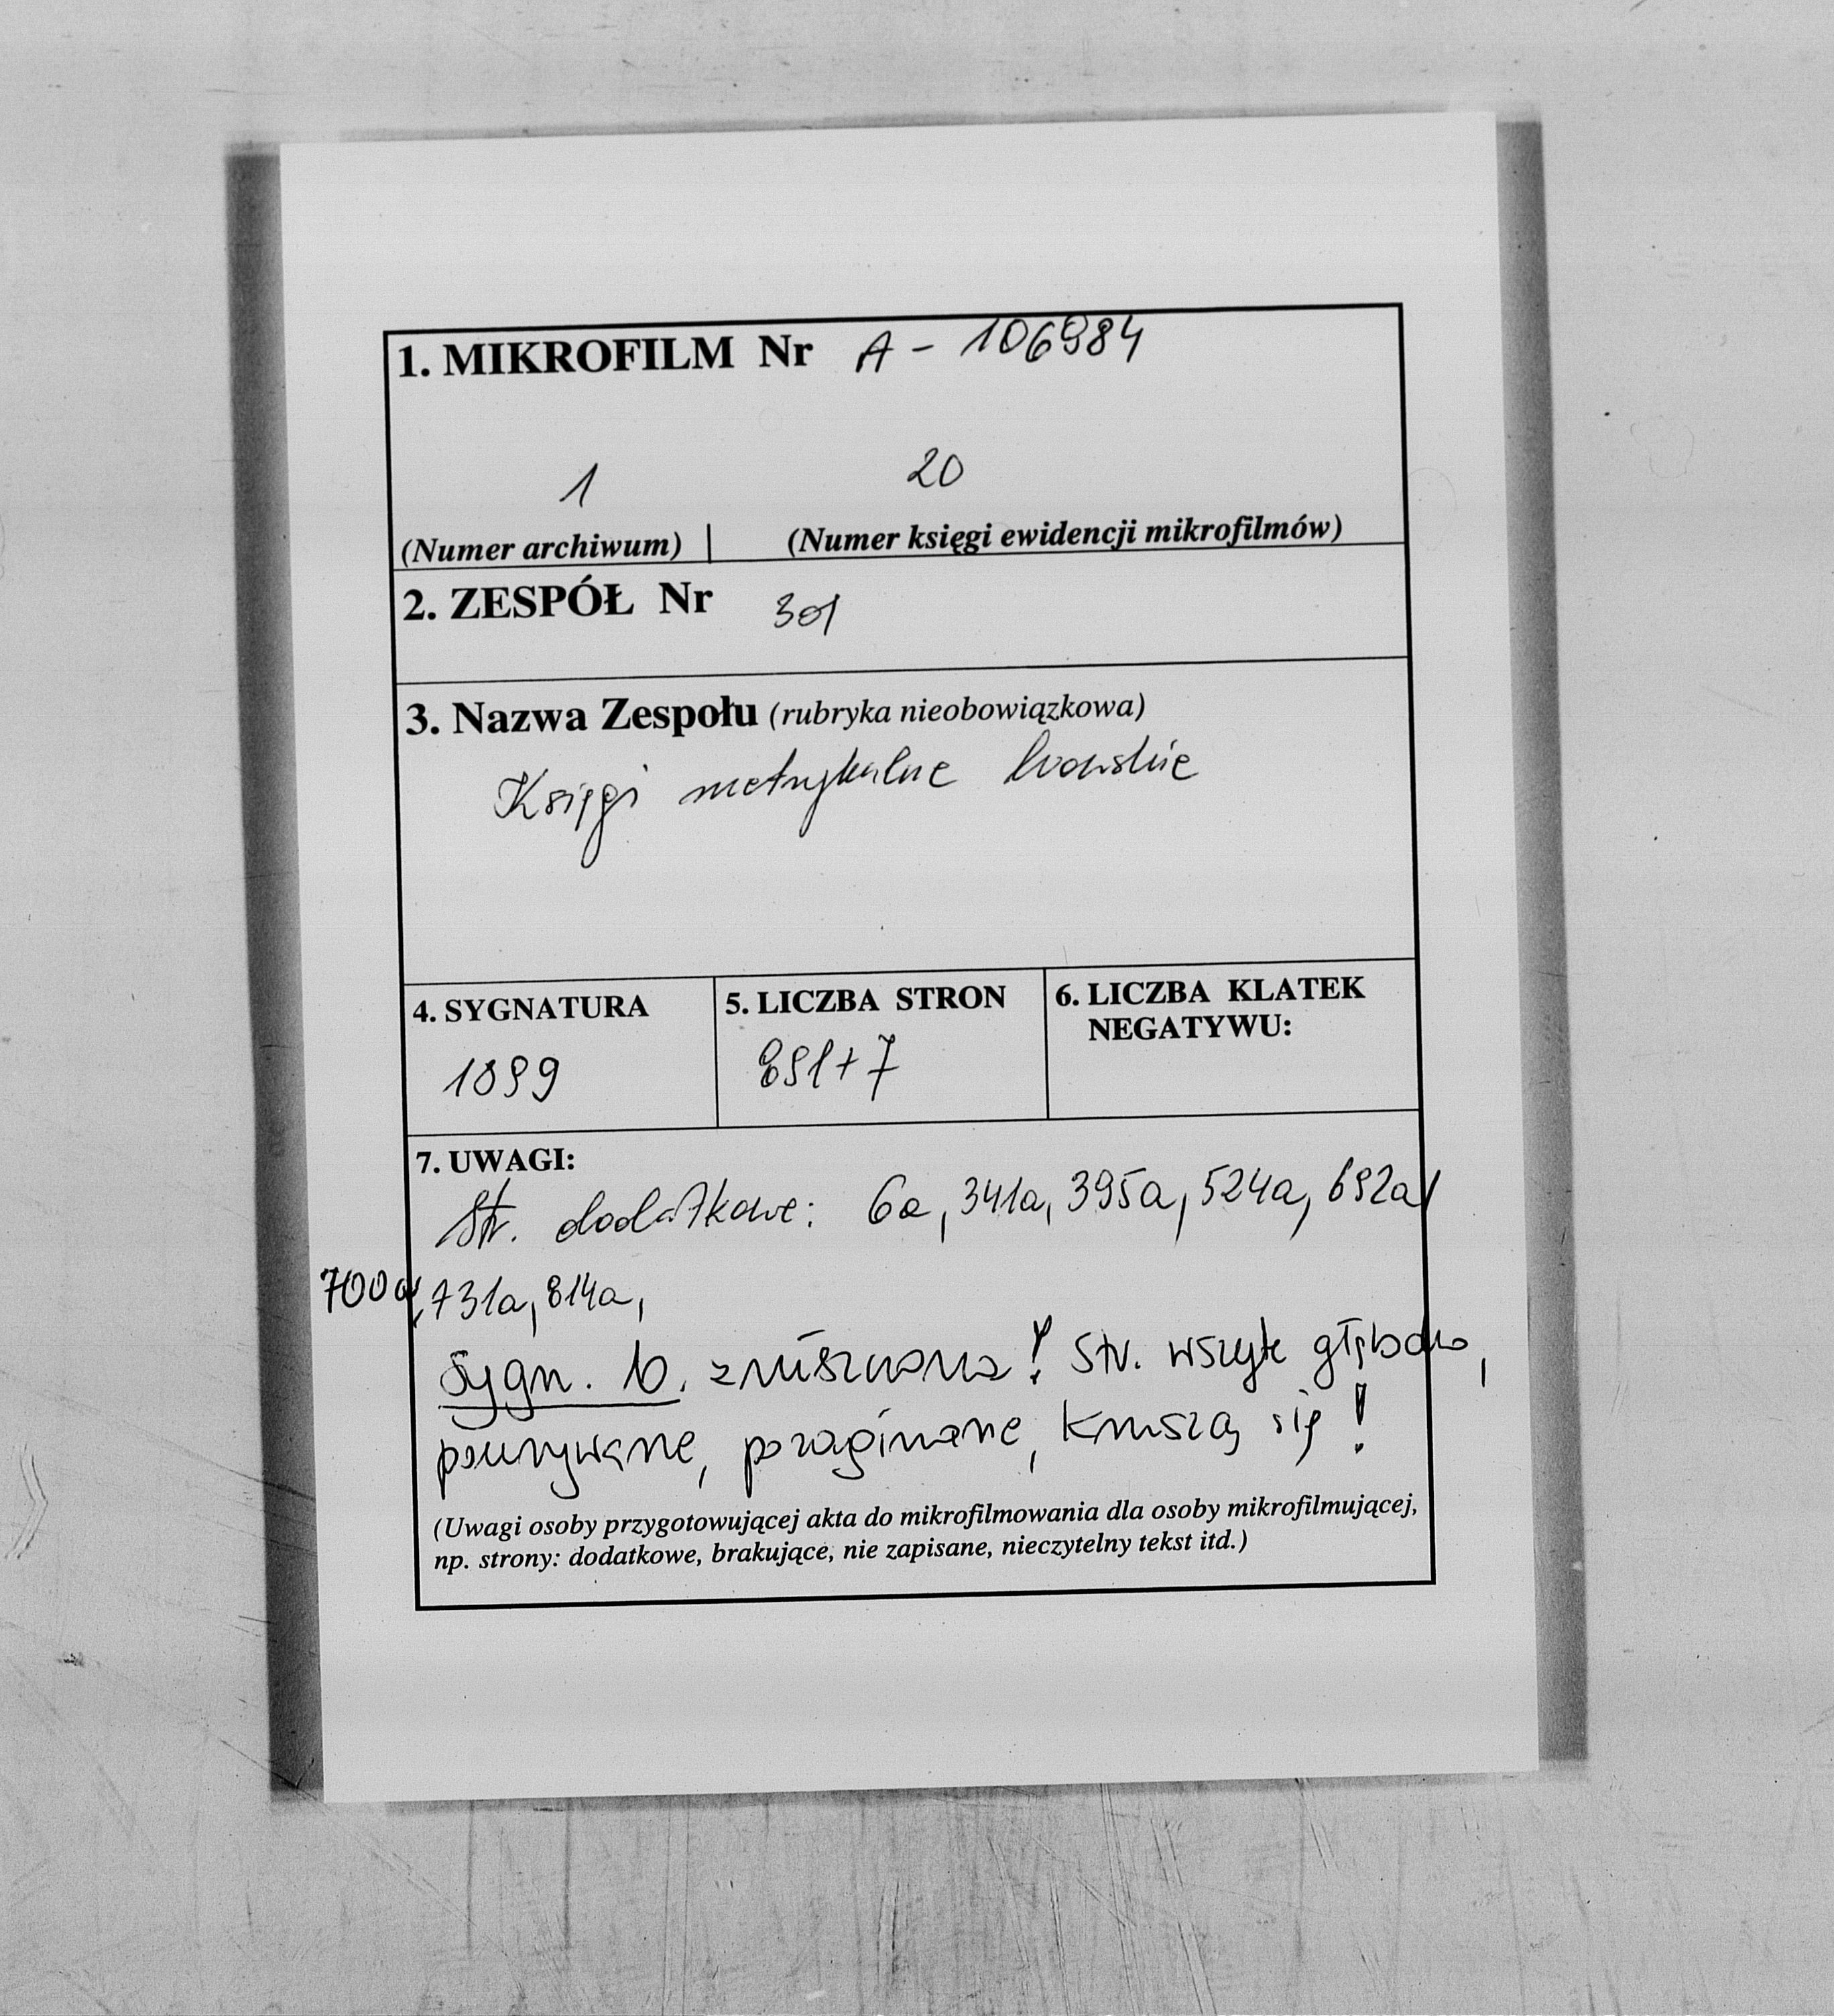 1. MIKROFILM Nr A - 106984
1 20
(Numer archiwum) | (Numer księgi ewidencji mikrofilmów)
2. ZESPÓŁ Nr 301
3. Nazwa Zespołu (rubryka nieobowiązkowa)
Księgi metrykalne lwowskie
4. SYGNATURA 5. LICZBA STRON 6. LICZBA KLATEK
NEGATYWU:
1099 891+7
7. UWAGI:
Str. dodatkowe: 6a, 341a, 395a, 524a, 692a,
700a, 731a, 814a,
Sygn. b. zniszczona! Str. wszyte głęboko,
pourywane, pozaginane, kruszą się!
(Uwagi osoby przygotowującej akta do mikrofilmowania dla osoby mikrofilmującej,
np. strony: dodatkowe, brakujące, nie zapisane, nieczytelny tekst itd.)